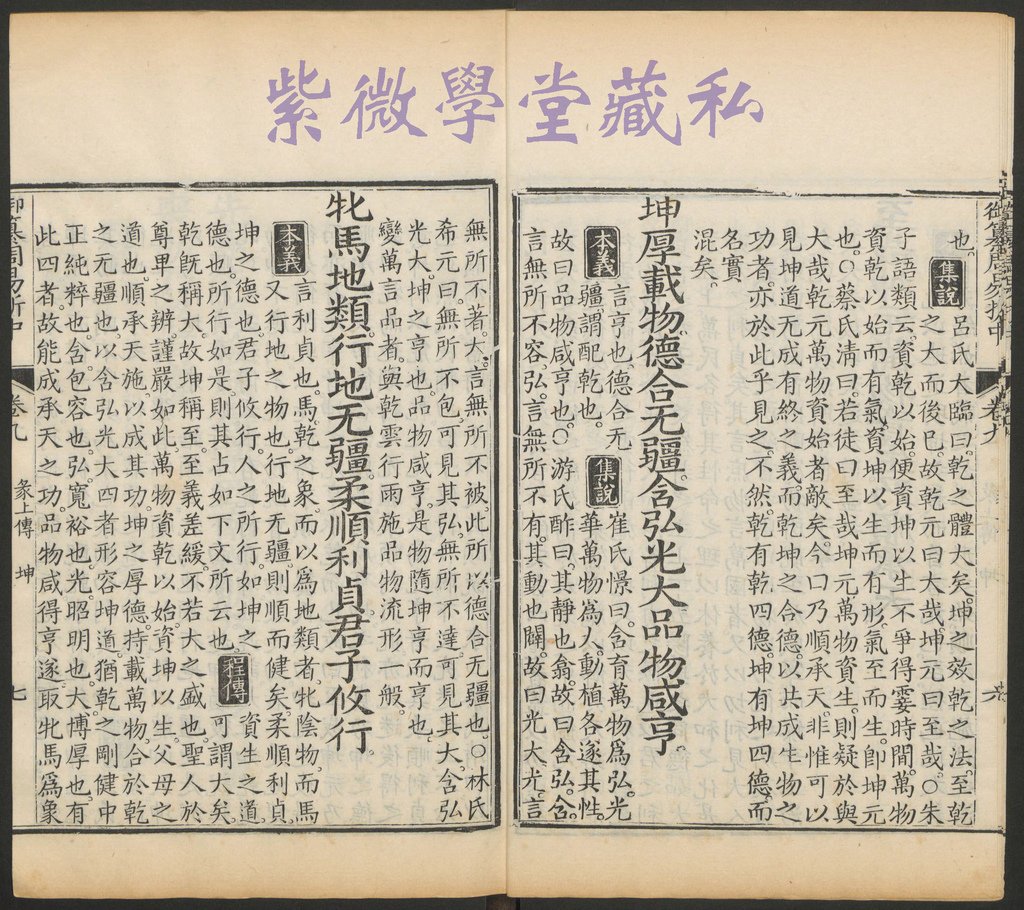 紫微學堂藏私
也。集說呂氏大臨曰。乾之體大矣。坤之效乾之法。至乾
之大而後已。故乾元曰大哉。坤元曰至哉。○朱
子語類云。資乾以始。便資坤以生。不爭得霎時間。萬物
資乾以始而有氣。資坤以生而有形。氣至而生。卽坤元
也。○蔡氏淸曰。若徒曰至哉坤元。萬物資生。則疑於與
大哉乾元萬物資始者敵矣。今曰乃順承天。非惟可以
見坤道无成有終之義。而乾坤之合德。以共成生物之
功者。亦於此乎見之。不然。乾有乾四德。坤有坤四德。而
名實
混矣。
坤厚載物。德合无疆。含弘光大。品物咸亨。
本義言亨也。德合无
疆。謂配乾也。
集說崔氏憬曰。含育萬物爲弘。光
華萬物爲大。動植各遂其性。
故曰品物咸亨也。○游氏酢曰。其靜也翕。故曰含弘。含。
言無所不容。弘。言無所不有。其動也闢。故曰光大。光。言
無所不著。大。言無所不被。此所以德合无疆也。○林氏
希元曰。無所不包。可見其弘。無所不達。可見其大。含弘
光大。坤之亨也。品物咸亨。是物隨坤亨而亨也。
變萬言品者。與乾雲行雨施品物流形一般。
牝馬地類。行地无疆。柔順利貞。君子攸行。
本義言利貞也。馬。乾之象。而以爲地類者。牝陰物。而馬
又行地之物也。行地无疆。則順而健矣。柔順利貞。
坤之德也。君子攸行。人之所行。如坤之
德也。所行如是。則其占如下文所云也。
程傳資生之道。
可謂大矣。
乾旣稱大。故坤稱至。至義差緩。不若大之盛也。聖人於
尊卑之辨。謹嚴如此。萬物資乾以始。資坤以生。父母之
道也。順承天施。以成其功。坤之厚德。持載萬物。合於乾
之无疆也。以含弘光大四者形容坤道。猶乾之剛健中
正純粹也。含。包容也。弘。寬裕也。光。昭明也。大。博厚也。有
此四者。故能成承天之功。品物咸得亨遂。取牝馬爲象
御纂周易折中
卷九
彖上傳 坤
七